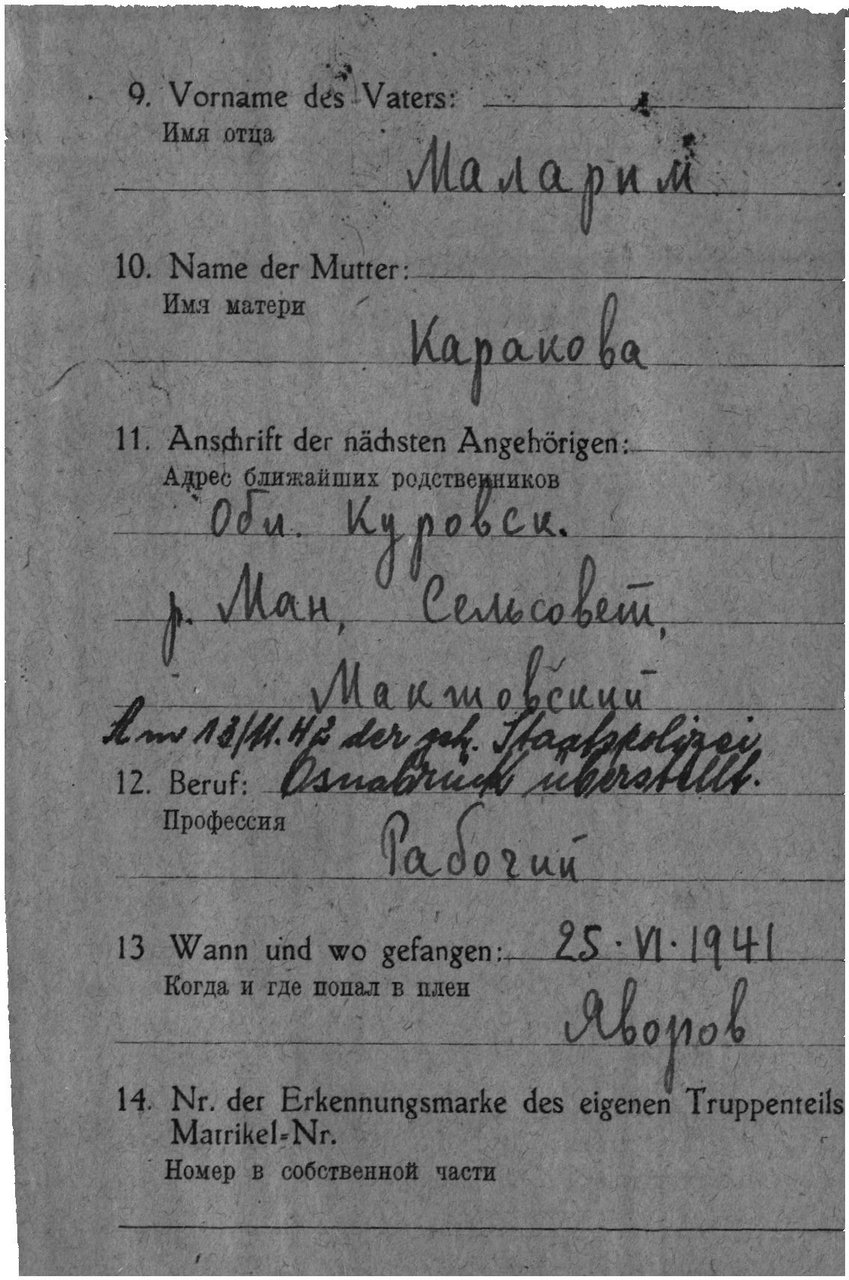 9. Vorname des Vaters:
Имя отца
Маларим
10. Name der Mutter:
Имя матери
Каракова
11. Anschrift der nächsten Angehörigen:
Адрес ближайших родственников
Обл. Куровск.
р. Ман, Сельсовет,
Мактовский
Am 13/11.42 der geh. Staatspolizei
12. Beruf: Osnabrück überstellt.
Профессия
Рабочий
13 Wann und wo gefangen: 25·VI·1941
Когда и где попал в плен
Яворов
14. Nr. der Erkennungsmarke des eigenen Truppenteils
Matrikel-Nr.
Номер в собственной части